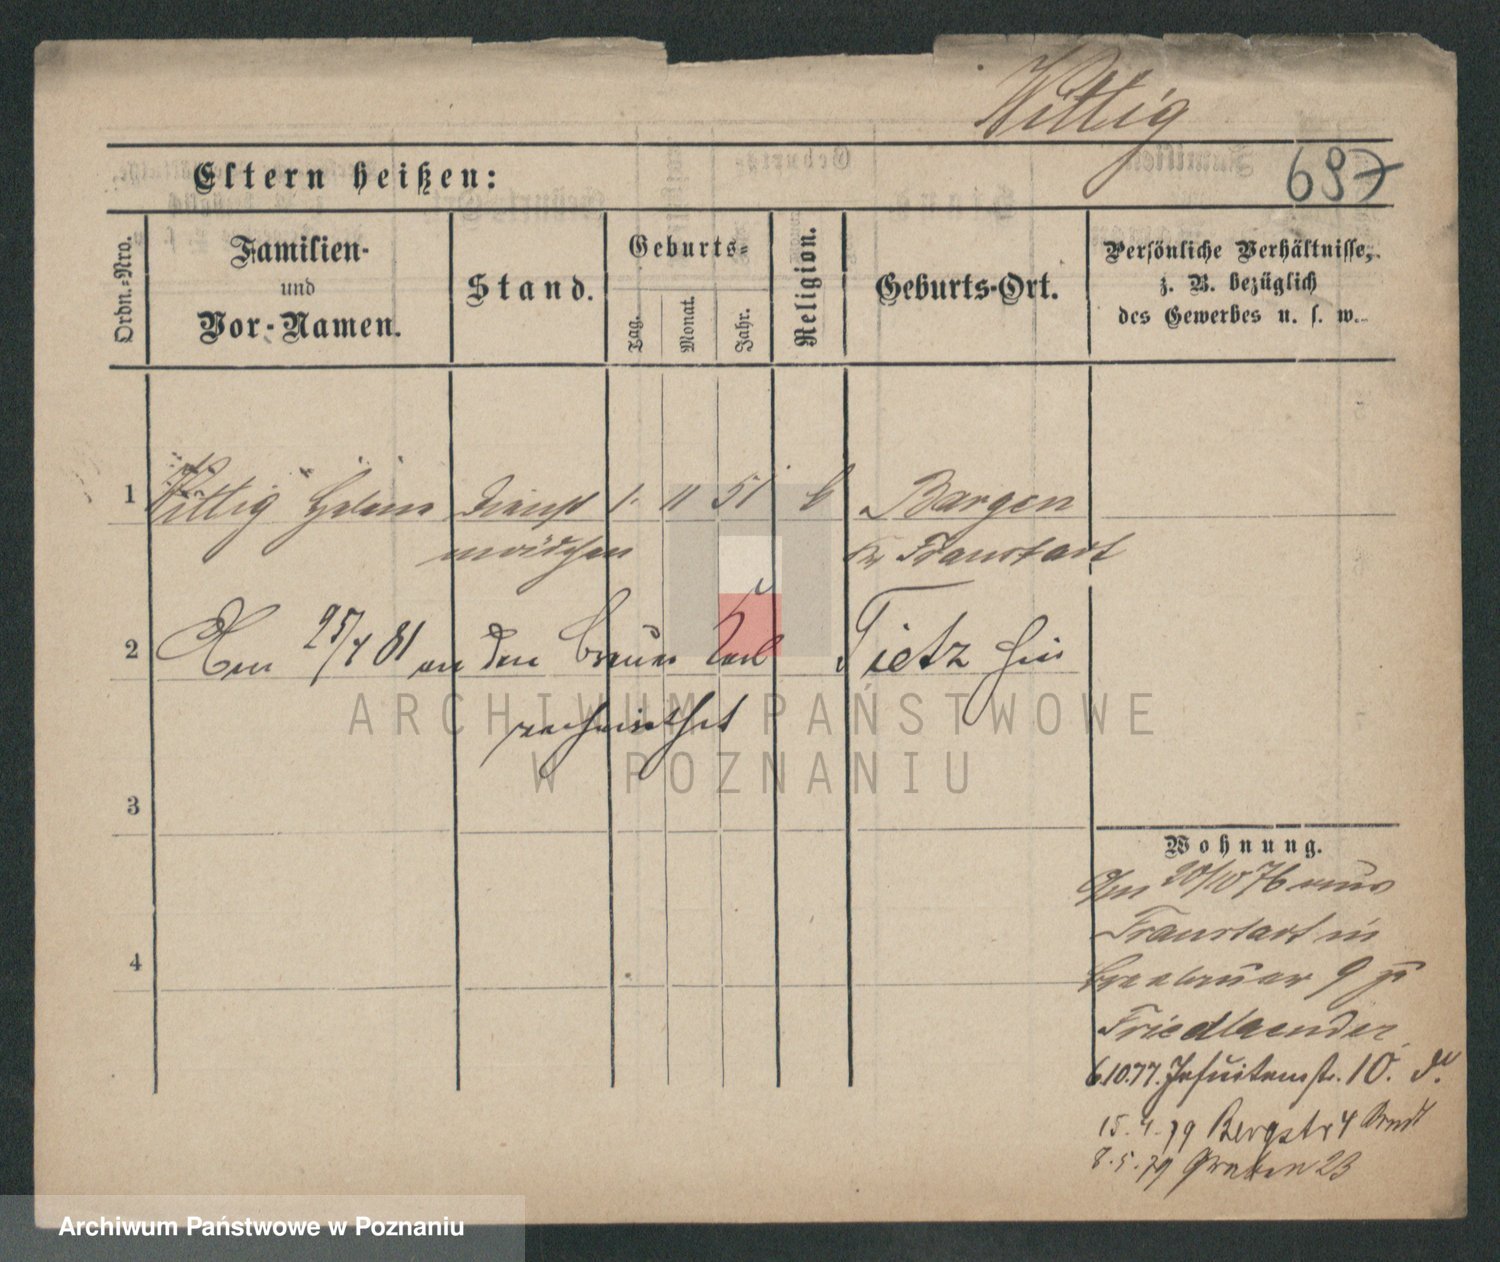 Wittig
697
Eltern heißen:
Ordn.-Nro.
Familien-
und
Vor-Namen.
Stand.
Geburts-
Tag.
Monat.
Jahr.
Religion.
Geburts-Ort.
Persönliche Verhältnisse,
z. B. bezüglich
des Gewerbes u. s. w.
1 Wittig Helene Dienst 1. 11 51 Bargen
mädchen Kr Fraustadt
2 Am 25/4 81 an den Brauer Karl Tietz hier
verheirathet
3
4
Wohnung.
Am 20/10 76 aus
Fraustadt in
9
Friedlaender
6.10.77. Jesuitenstr. 10.
15.4.79 Bergstr 4
8.5.79 Graben 23
ARCHIWUM PAŃSTWOWE
W POZNANIU
Archiwum Państwowe w Poznaniu